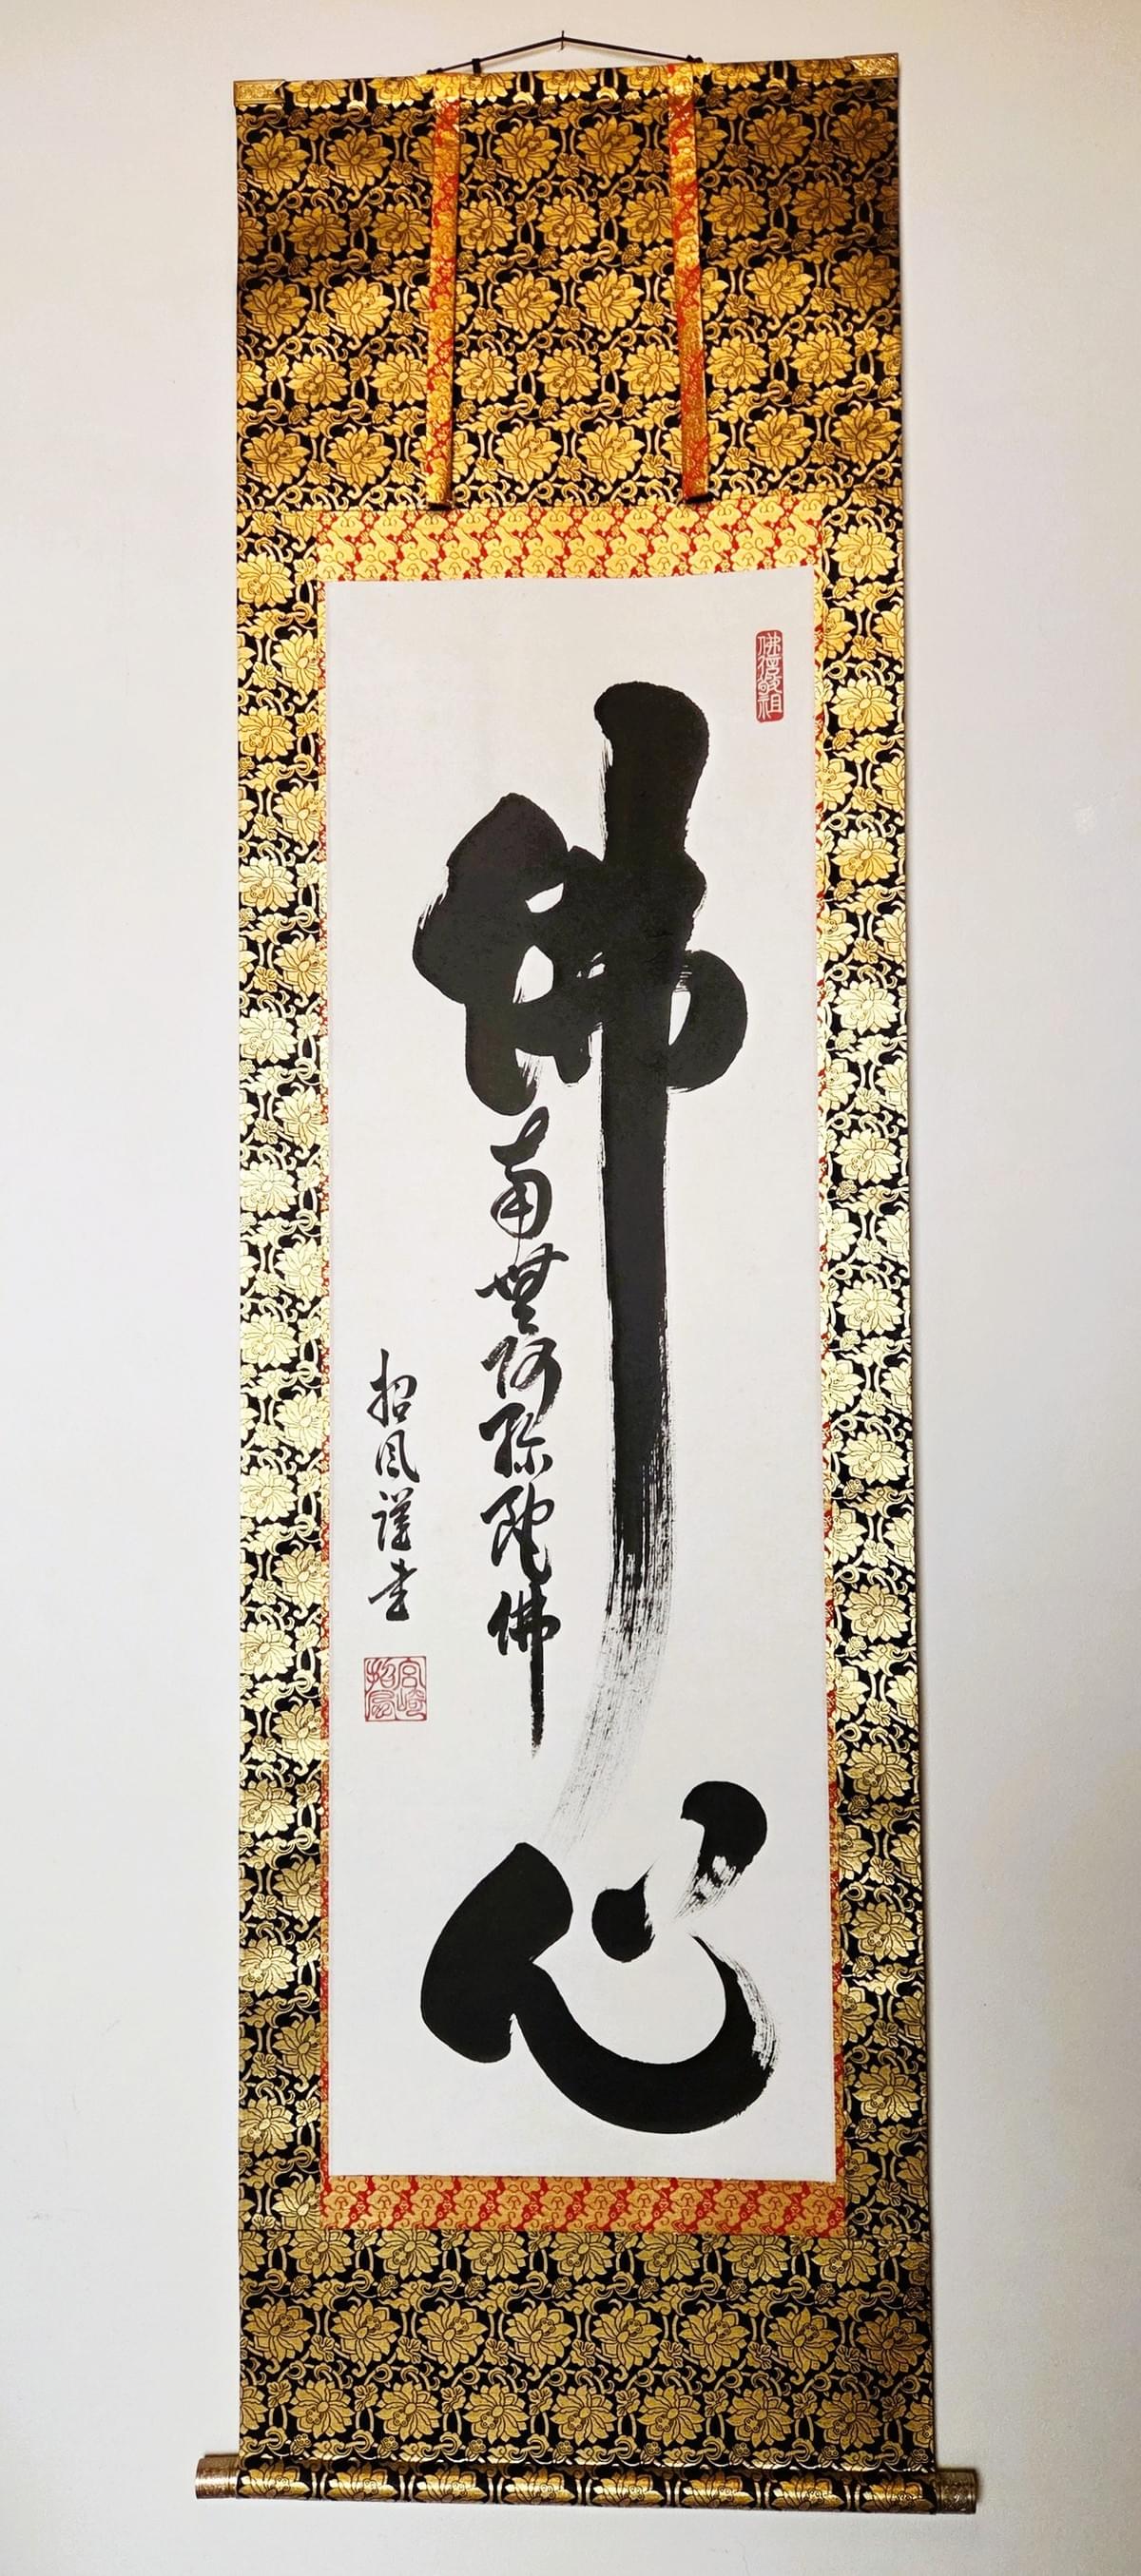 佛心
南無阿弥陀佛
招風謹書
佛信敬祖
宮崎招風